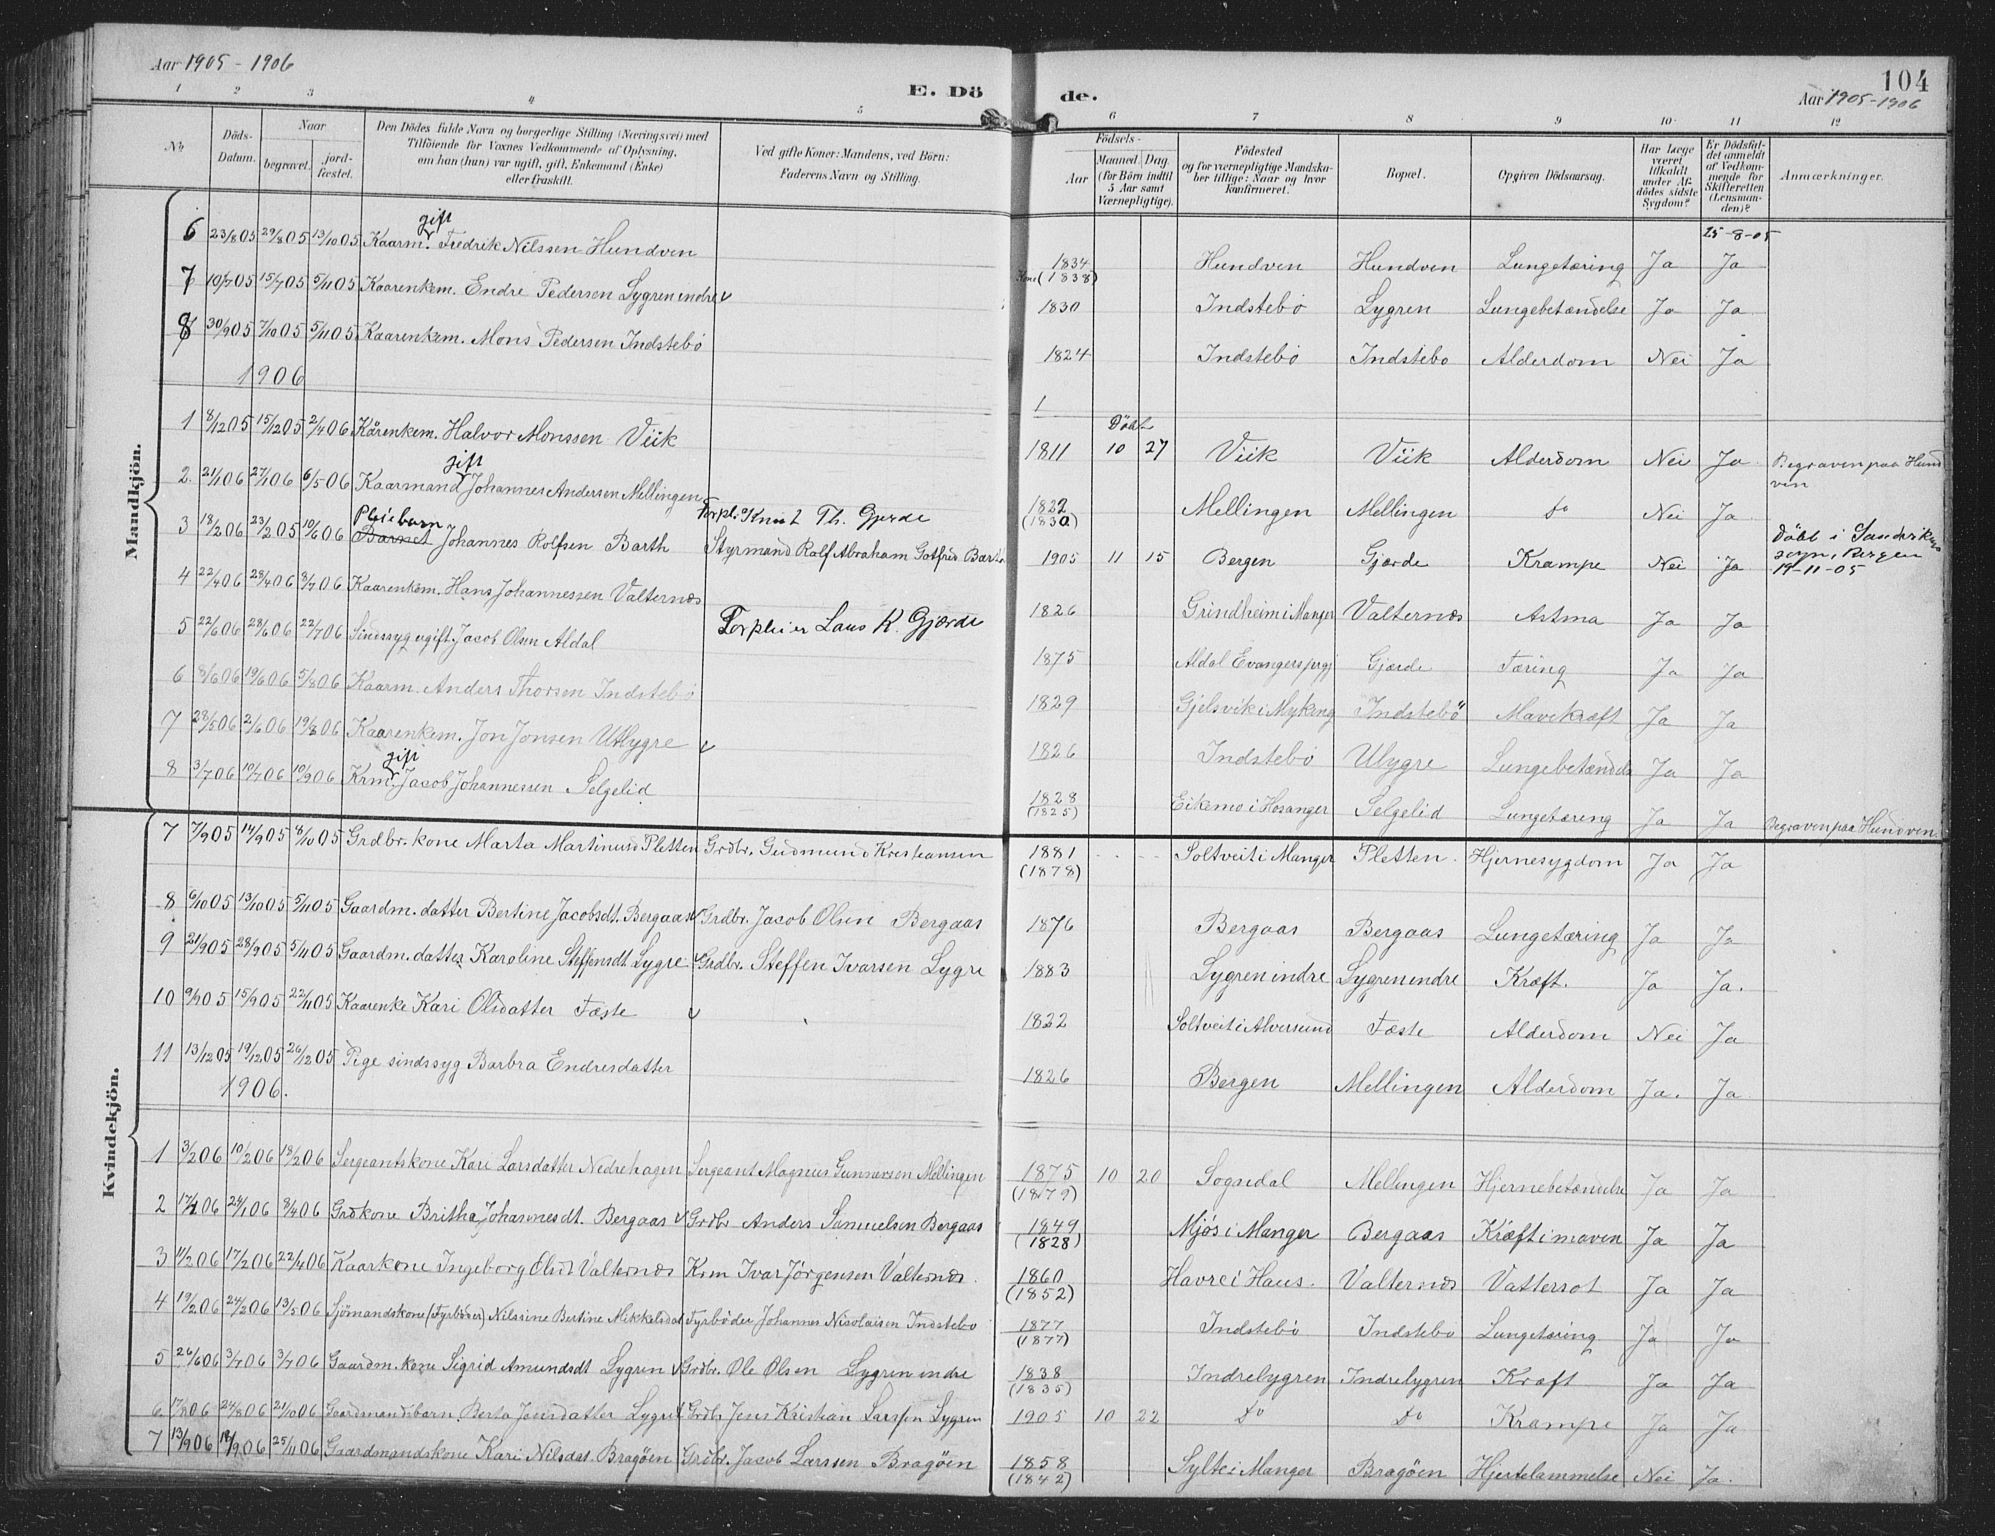 Aar 1905 - 1906
E. Dö de.
104
Aar 1905-1906
1 2 3 4 5 6 7 8 9 10 11 12
No
Döds-Datum.
Naar
begravet.
jord-fæstet.
Den Dödes fulde Navn og borgerlige Stilling (Næringsvei) med
Tilföiende for Voxnes Vedkommende af Oplysning,
om han (hun) var ugift, gift, Enkemand (Enke)
eller fraskilt.
Ved gifte Koner: Mandens, ved Börn:
Faderens Navn og Stilling.
Födsels-
Aar
Maaned Dag
(for Börn indtil
5 Aar samt
Værnepligtige).
Födested
og for værnepligtige Mandska-
ber tillige: Naar og hvor
konfirmeret.
Bopæl.
Opgiven Dödsaarsag.
Har Læge
været
tilkaldt
under Af-
dödes sidste
Sygdom?
Er Dödsfal-
det anmeldt
af Vedkom-
mende for
Skifteretten
(Lensman-
den)?
Anmærkninger.
Mandkjön.
25-8-05
6 23/8 05 29/8 05 13/10 05 Kaarm. gift Fredrik Nilssen Hundven 1834 Kone (1838) Hundven Hundven Lungetæring Ja Ja
7 10/7 05 15/7 05 5/11 05 Kaarenkem. Endre Pedersen Lygren indre v 1830 Indstebö Lygren Lungebetændelse Ja Ja
8 30/9 05 7/10 05 5/11 05 Kaarenkem. Mons Pedersen Indstebö 1824 Indstebö Indstebo Alderdom Nei Ja
1906
1
1 8/12 05 15/12 05 2/4 06 Kårenkem. Halvor Monssen Viik 1811 Döbt 10 27 Viik Viik Alderdom Nei Ja Begraven paa Hundven
2. 21/1 06 27/1 06 6/5 06 Kaarmand gift Johannes Andersen Mellingen 1822 (1830) Mellingen Mellingen do Nei Ja
3 18/2 06 23/2 05 10/6 06 Pleiebarn Barnet Johannes Rolfsen Barth Forpl. Knut Th. Gjerde
Styrmand Ralf Abraham Gotfrid Barth 1905 11 15 Bergen Gjærde Krampe Nei Ja Döbt i Sandvikens
sogn, Bergen
19-11-05
4 22/4 06 28/4 06 8/7 06 Kaarenkem. Hans Johannessen Valternæs 1826 Grindheim i Manger Valternæs Astma Ja Ja
5 22/6 06 28/6 06 22/7 06 Sindssyg ugift Jacob Olsen Aldal Forpleier Lars K. Gjærde 1875 Aldal Evangers prgj Gjærde Tæring Ja Ja
6 8/6 06 19/6 06 5/8 06 Kaarm. Anders Thorsen Indstebö 1829 Gjelsvik i Myking Indstebö Mavekræft Ja Ja
7 28/5 06 2/6 06 19/8 06 Kaarenkem. Jon Jonsen Utlygre v 1826 Indstebö Ulygre Lungebetændels Ja Ja
8 3/7 06 10/7 06 10/9 06 Krm. gift Jacob Johannessen Selgelid 1828 (1825) Eikemo i Hosanger Selgelid Lungetæring Ja Ja Begraven paa Hundven
Kvindekjön.
7 7/9 05 14/9 05 8/10 05 Grdbr. kone Marta Martinusd Pletten Grdbr. Gudmund Kristiansen 1881 (1878) Soltveit i Manger Pletten. Hjernesygdom Ja Ja
8 6/10 05 13/10 05 5/11 05 Gaardm. datter Bertine Jacobsdt. Bergaas v Grdbr. Jacob Olsen Bergaas 1876 Bergaas Bergaas Lungetæring Ja Ja
9 21/9 05 28/9 05 5/11 05 Gaardm. datter Karoline Steffensdt Lygre v Grdbr. Steffen Ivarsen Lygre 1883 Lygren indre Lygren indre Kræft. Ja Ja.
10 9/9 05 15/9 05 22/11 05 Kaarenke Kari Olsdatter Fæste v 1822 Soltveit i Alversund Fæste Alderdom Nei Ja
11 13/12 05 19/12 05 26/12 05 Pige sindssyg Barbra Endresdatter 1826 Bergen Mellingen Alderdom Ja. Ja
1906.
1 3/2 06 10/2 06 18/2 06 Sergeantskone Kari Larsdatter Nedrehagen Sergeant Magnus Gunnarsen Mellingen 1875 (1879) 10 20 Sogndal Mellingen Hjernebetændelse Ja Ja
2 17/1 06 24/1 06 8/4 06 Grdkone Britha Johannesdt. Bergaas v Grdbr Anders Samuelsen Bergaas 1849 (1828) Mjös i Manger Bergaas Kræft i maven Ja Ja
3 11/2 06 17/2 06 22/4 06 Kaarkone Ingeborg Olsdt Valternæs Krm Ivar Jörgensen Valternæs. 1860 (1852) Havre i Haus. Valternæs Vattersot Ja Ja
4 19/2 06 24/2 06 13/5 06 Sjömandskone (Fyrböder) Nilsine Bertine Mikkelsdat Fyrböder Johannes Nicolaisen Indstebo 1877 (1877) Indstebö Indstebö Lungetæring Ja Ja
5 26/6 06 3/7 06 3/7 06 Gaardm. kone Sigrid Amundsdt Lygren v Grdbr. Ole Olsen Lygren indre 1838 (1835) Indrelygren Indrelygren Kræft Ja Ja
6 17/8 06 24/8 06 21/10 06 Gaardmandsbarn Berta Jensdatter Lygre Grdbr Jens Kristian Larssen Lygren 1905 10 22 do do Krampe Ja Ja
7 13/9 06 18/9 06 25/11 06 Gaardmandskone Kari Nilsdat. Bragöen Grdbr. Jacob Larssen Bragöen 1858 (1842) Sylte i Manger Bragöen Hjertelammelse Nei Ja.